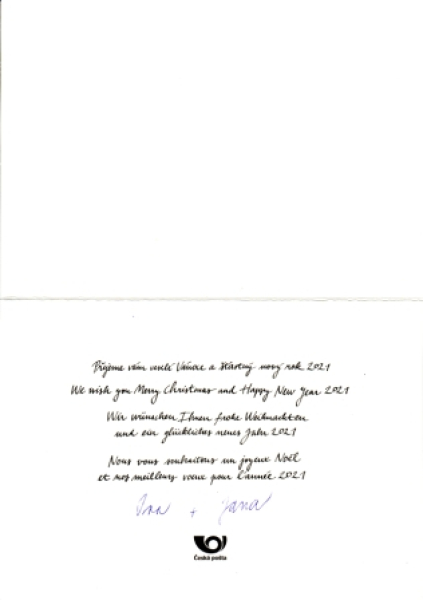 Přejeme vám veselé Vánoce a šťastný nový rok 2021
We wish you Merry Christmas and Happy New Year 2021
Wir wünschen Ihnen frohe Weihnachten
und ein glückliches neues Jahr 2021
Nous vous souhaitons un joyeux Noël
et nos meilleurs vœux pour l'année 2021
+ Jana
Česká pošta